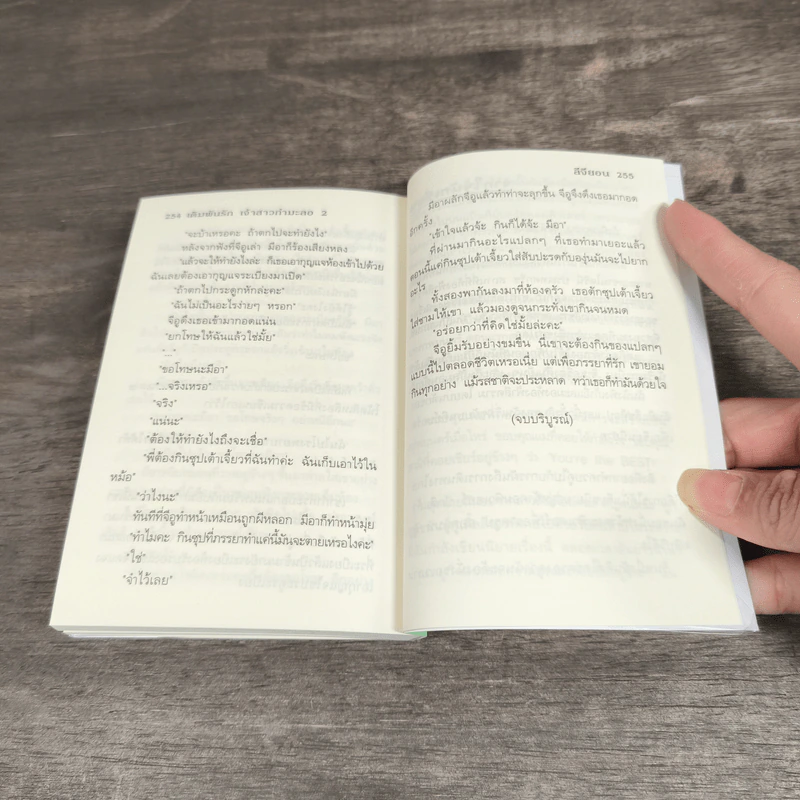 254 เดิมพันรัก เจ้าสาวกำมะลอ 2
"จะบ้าเหรอคะ ถ้าตกไปจะทำยังไง"
หลังจากฟังที่จีอูเล่า มีอาก็ร้องเสียงหลง
"แล้วจะให้ทำยังไงล่ะ ก็เธอเอากุญแจห้องเข้าไปด้วย
ฉันเลยต้องเอากุญแจระเบียงมาเปิด"
"ถ้าตกไปกระดูกหักล่ะคะ"
"ฉันไม่เป็นอะไรง่ายๆ หรอก"
จีอูดึงเธอเข้ามากอดแน่น
"ยกโทษให้ฉันแล้วใช่มั้ย"
"..."
"ขอโทษนะมีอา"
"...จริงเหรอ"
"จริง"
"แน่นะ"
"ต้องให้ทำยังไงถึงจะเชื่อ"
"พี่ต้องกินซุปเต้าเจี้ยวที่ฉันทำค่ะ ฉันเก็บเอาไว้ใน
หม้อ"
"ว่าไงนะ"
ทันทีที่จีอูทำหน้าเหมือนถูกผีหลอก มีอาก็ทำหน้ามุ่ย
"ทำไมคะ กินซุปที่ภรรยาทำแค่นี้มันจะตายเหรอไงคะ"
"ใช่"
"จำไว้เลย"
ลีจียอน 255
มีอาผลักจีอูแล้วทำท่าจะลุกขึ้น จีอูจึงดึงเธอมากอด
อีกครั้ง
"เข้าใจแล้วจ้ะ กินก็ได้จ้ะ มีอา"
ที่ผ่านมากินอะไรแปลกๆ ที่เธอทำมาเยอะแล้ว
ตอนนี้แค่กินซุปเต้าเจี้ยวใส่สับปะรดกับองุ่นมันจะไปยาก
อะไร
ทั้งสองพากันลงมาที่ห้องครัว เธอตักซุปเต้าเจี้ยว
ใส่ชามให้เขา แล้วมองดูจนกระทั่งเขากินจนหมด
"อร่อยกว่าที่คิดใช่มั้ยล่ะคะ"
จีอูยิ้มรับอย่างขมขื่น นี่เขาจะต้องกินของแปลกๆ
แบบนี้ไปตลอดชีวิตเหรอเนี่ย แต่เพื่อภรรยาที่รัก เขายอม
กินทุกอย่าง แม้รสชาติจะประหลาด ทว่าเธอก็ทำมันด้วยใจ
(จบบริบูรณ์)